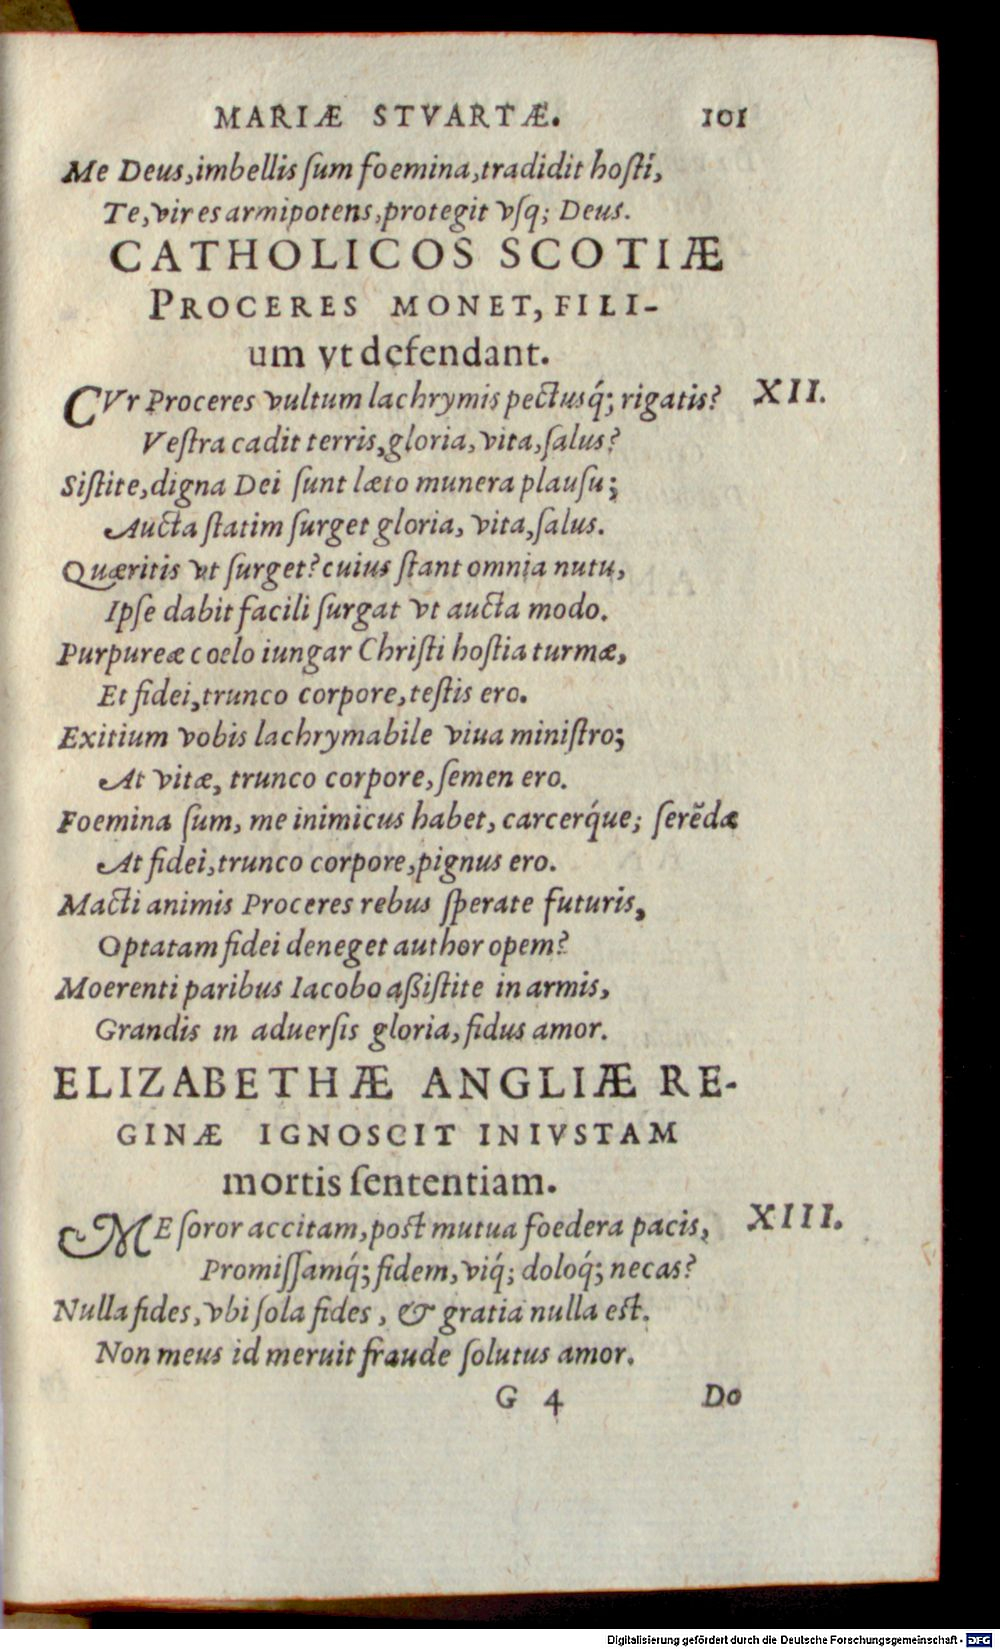 MARIÆ STVARTÆ. 101
Me Deus, imbellis ſum foemina, tradidit hoſti,
Te, vir es armipotens, protegit vſq; Deus.
CATHOLICOS SCOTIÆ
PROCERES MONET, FILI-
um vt defendant.
CVr Proceres vultum lachrymis pectusq́; rigatis? XII.
Veſtra cadit terris, gloria, vita, ſalus?
Siſtite, digna Dei ſunt læto munera plauſu;
Aucta ſtatim ſurget gloria, vita, ſalus.
Quæritis vt ſurget? cuius ſtant omnia nutu,
Ipſe dabit facili ſurgat vt aucta modo.
Purpureæ coelo iungar Chriſti hoſtia turmæ,
Et fidei, trunco corpore, teſtis ero.
Exitium vobis lachrymabile viua miniſtro;
At vitæ, trunco corpore, ſemen ero.
Foemina ſum, me inimicus habet, carcerq́ue; ſerẽdæ
At fidei, trunco corpore, pignus ero.
Macti animis Proceres rebus ſperate futuris,
Optatam fidei deneget author opem?
Moerenti paribus Iacobo aßiſtite in armis,
Grandis in aduerſis gloria, fidus amor.
ELIZABETHÆ ANGLIÆ RE-
GINÆ IGNOSCIT INIVSTAM
mortis ſententiam.
ME ſoror accitam, poſt mutua foedera pacis, XIII.
Promiſſamq́; fidem, viq́; doloq́; necas?
Nulla fides, vbi ſola fides, & gratia nulla eſt.
Non meus id meruit fraude ſolutus amor.
G 4 Do
Digitalisierung gefördert durch die Deutsche Forschungsgemeinschaft - DFG